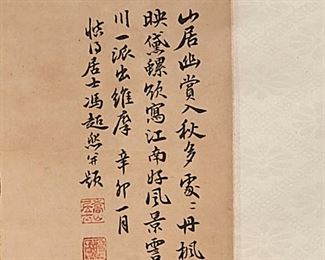 山居幽賞入秋多處〻丹楓
映黛螺欲寫江南好風景雲
川一派出維摩 辛卯一月
慎得居士馮超然并題